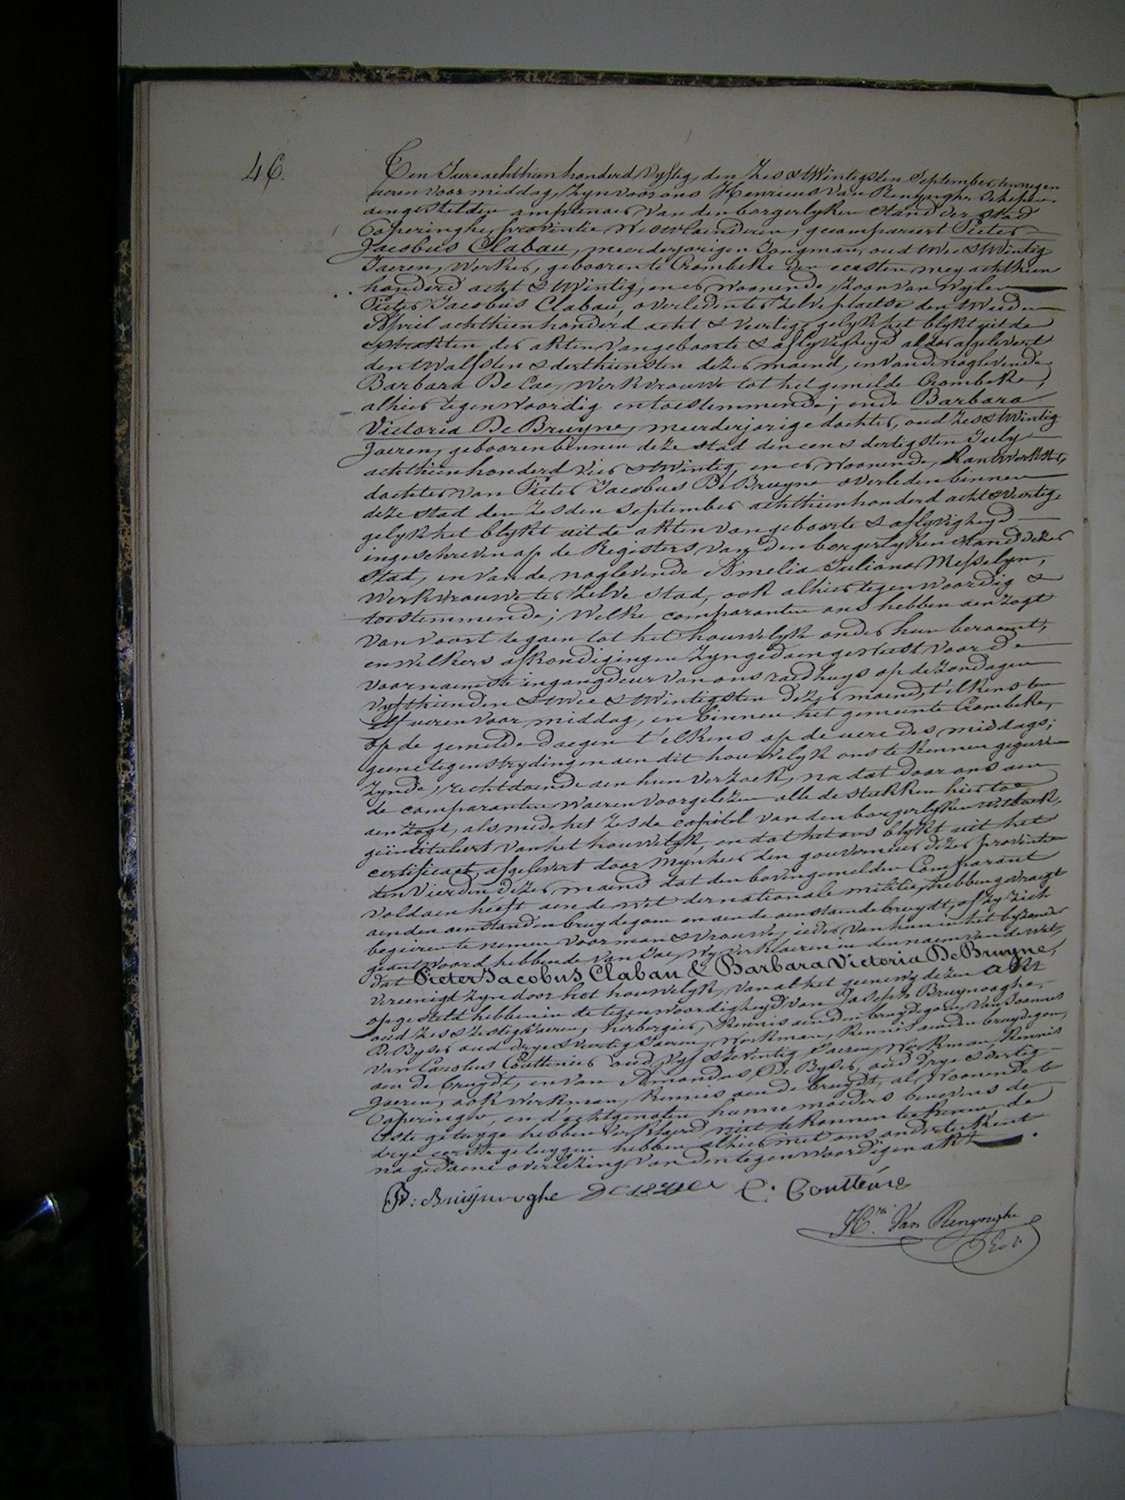 46.
Ten Jare achthien honderd vyftig, den zes & twintigsten September, ten negen
ueren voor middag, zyn voor ons Henricus Van Renynghe, schepen,
aengestelden amptenaer van den borgerlyken stand der stad
Poperinghe, provintie Westvlaenderen, gecompareert Pieter
Jacobus Clabau, meerderjarigen Jongman, oud twee & twintig
Jaeren, werker, geboren te Crombeke den eersten mey achthien
honderd acht & twintig, en er woonende, Zoon van wylen
Pieter Jacobus Clabau, overleden ter zelve plaetse den
April achthien honderd acht & veertig gelyk het blykt uit de
extrakten der akten van geboorte & aflyvigheyd aldaer afgelevert
den twalfsten & derthiensten dezer maend, en van de naglevende
Barbara De Cae, werkvrouwe tot het gemelde Crombeke,
alhier tegenwoordig en toestemmende; ende Barbara
Victoria De Bruyne, meerderjarige dochter, oud zes & twintig
Jaeren, geboren binnen deze stad den een & dertigsten July
achthien honderd vier & twintig, en er woonende, Kantwerkster,
dochter van Pieter Jacobus De Bruyne overleden binnen
deze stad den zesden September achthien honderd acht & veertig
gelyk het blykt uit de akten van geboorte & aflyvigheyd
ingeschreven op de Registers van den borgerlyken stand dezer
stad, en van de naglevende Amelia Juliana Messelyn,
werkvrouwe ter zelve stad, ook alhier tegenwoordig &
toestemmende; welke comparanten ons hebben aenzogt
van voort te gaen tot het houwelyk onder hun beraemt,
en welkers afkondigingen zyn gedaen geweest voor de
voornaemste ingangdeur van ons raedhuys op de zondagen
vyfthienden & twee & twintigsten dezer maend, t'elkens ten
elf ueren voor middag, en binnen het gemeente Crombeke,
op de gemelde daegen t'elkens op de uere des middags;
geene tegenstrydingen aen dit houwelyk ons te kennen gegeven
zynde, rechtdoende aen hun verzoek, na dat door ons aen
de comparanten waeren voorgelezen alle de stukken hier toe
aenzogt, alsmede het zesde capitel van den borgerlyken wetboek,
geïntituleert van het houwelyk, en dat het ons blykt uit het
certificaet, afgelevert door Mynheer den gouverneur dezer provintie
den vierden dezer maend dat den bovengemelden Comparant
voldaen heeft aen de wet der nationale militie, hebben gevraegt
aen den aenstaenden bruydegom en aen de aenstaende bruydt, of zy zich
begeeren te nemen voor man & vrouw, ieder van hun in het byzonder
geantwoord hebbende van Jae, wy verklaeren in den naem van de wet,
dat Pieter Jacobus Clabau & Barbara Victoria De Bruyne,
vereenigt zyn door het houwelyk, van al het geene wy dezen akt
opgesteld hebben in de tegenwoordigheyd van Joseph Bruynooghe,
oud zes & zestig Jaeren, herbergier, kennis aen den bruydegom, van Joannes
De Byser oud drye & veertig Jaeren, workman, kennis aen den bruydegom,
van Carolus Couttenier oud vyf & twintig Jaeren, workman, kennis
aen de bruydt, en van Amandus De Byser, oud drye & dertig
Jaeren, ook werkman, kennis aen de bruydt, al woonende te
Poperinghe, en d'echtgenoten hunne moeders benevens de
leste getuyge hebben verklaerd niet te konnen teekenen de
drye eerste getuygen hebben alhier met ons onderteekent
na gedaene overlezing van den tegenwoordigen akt.
Bruijnooghe C. Couttenier
H.ri Van Renynghe